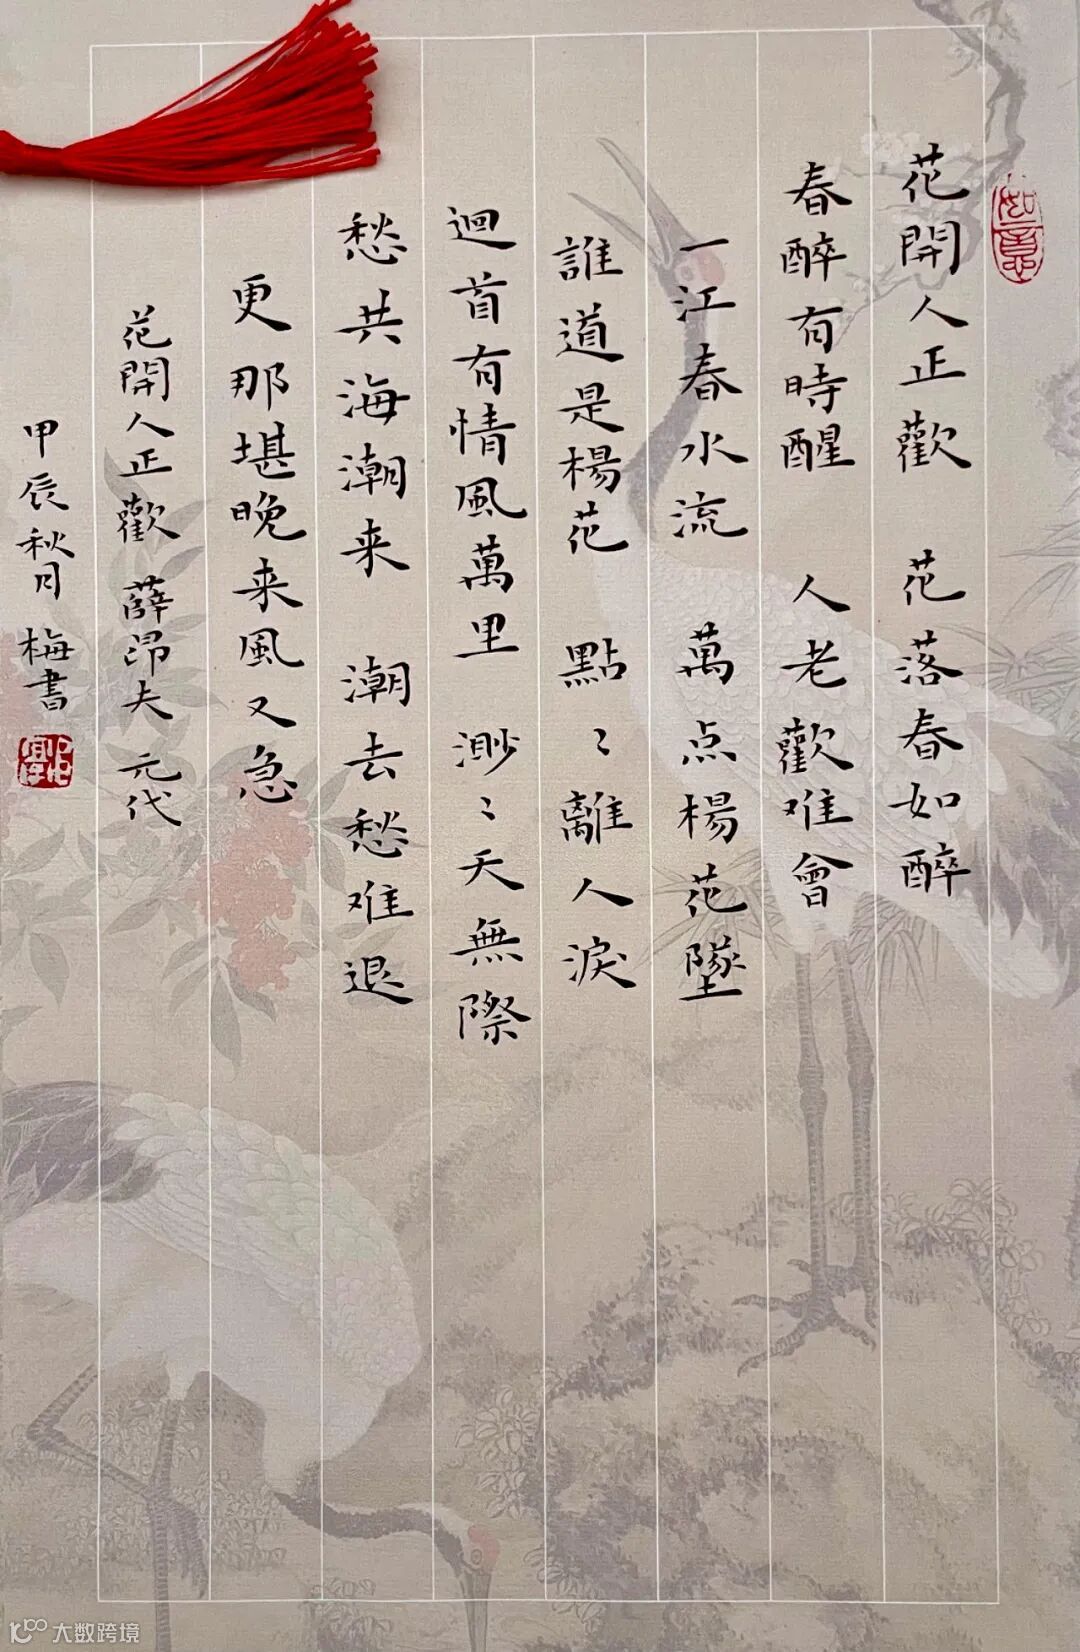 如意
花開人正歡 花落春如醉
春醉有時醒 人老歡难會
一江春水流 萬点楊花墜
誰道是楊花 點〻離人淚
迴首有情風萬里 渺〻天無際
愁共海潮来 潮去愁难退
更那堪晚来風又急
花開人正歡 薛昂夫 元代
甲辰秋月 梅書
大数跨境